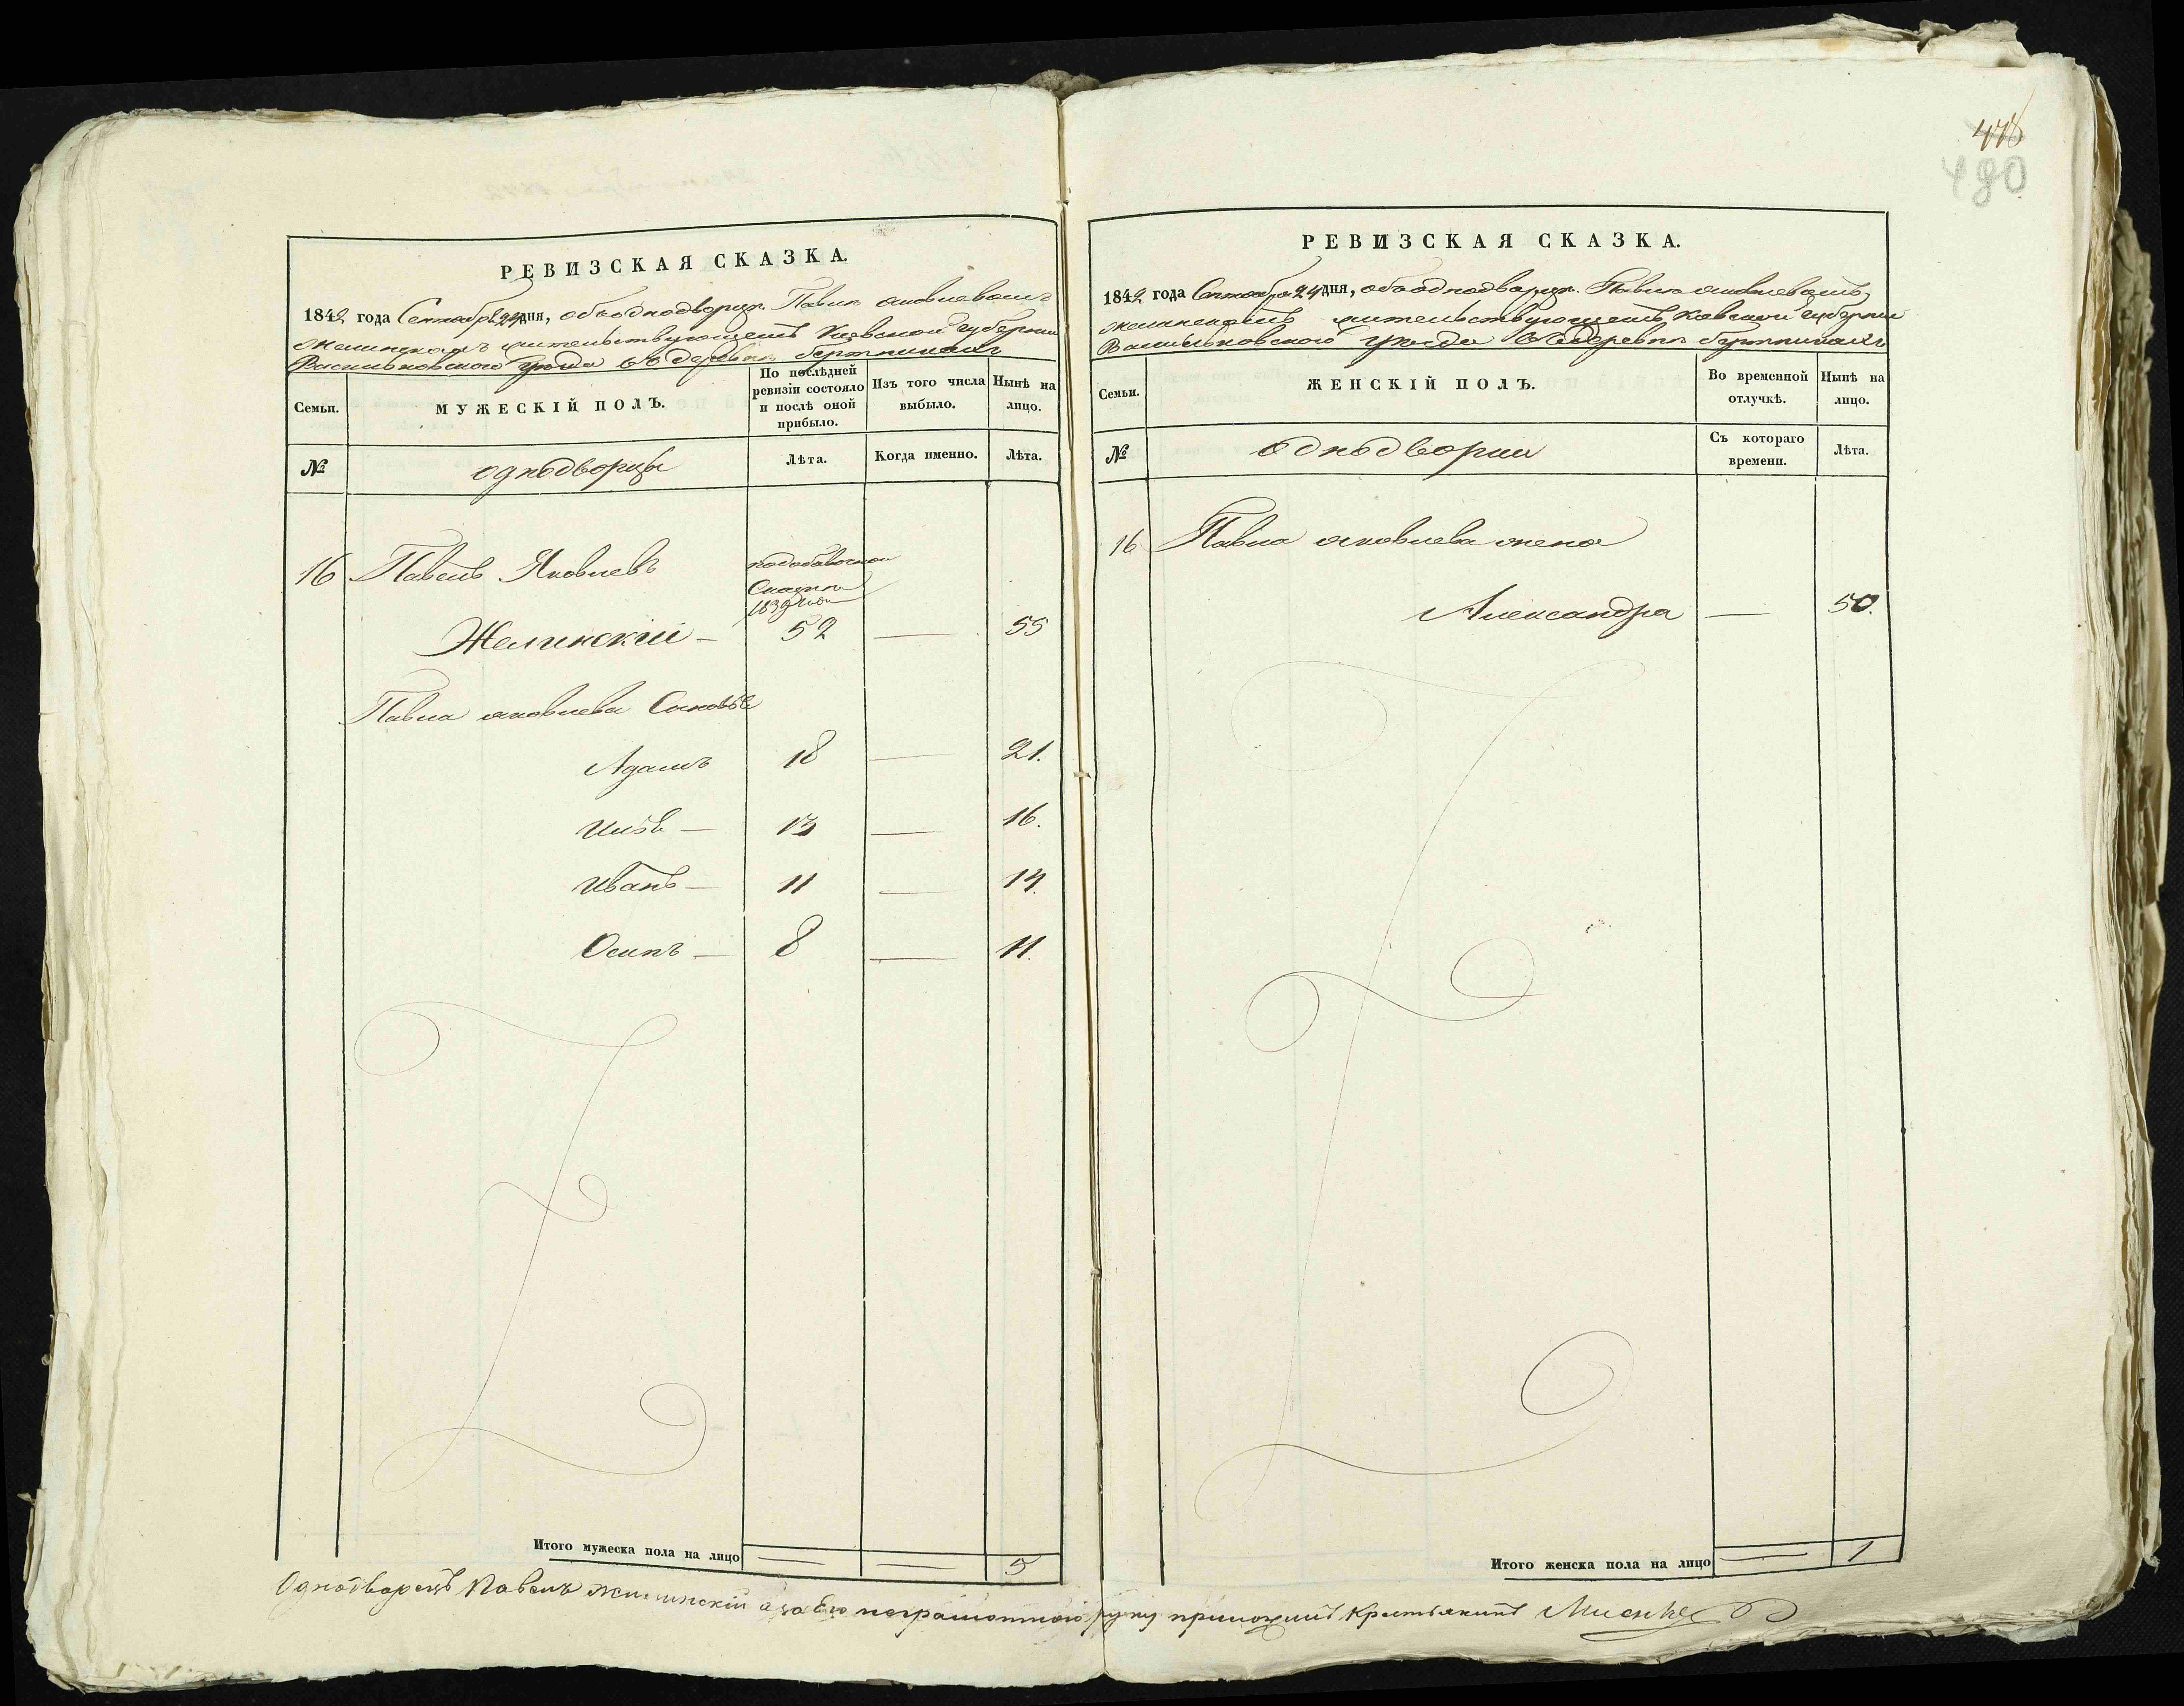 478
480
РЕВИЗСКАЯ СКАЗКА.
1842 года Сентября 24 дня, объ однодворцѣ Павлѣ Яковлевомъ
Желинскомъ жительствующемъ Кіевской губерніи
Васильковскаго уѣзда въ деревнѣ
Семьи.
МУЖЕСКІЙ ПОЛЪ.
По послѣдней ревизіи состояло и послѣ оной прибыло.
Изъ того числа выбыло.
Нынѣ на лицо.
№
однодворцы
Лѣта.
Когда именно.
Лѣта.
16 Павелъ Яковлевъ
по добавочной
Сказки
1839 года
Желинскій — 52 — 55
Павла яковлева Сыновья
Адамъ 18 — 21.
Илья — 13 — 16.
Иванъ — 11 — 14.
Осипъ — 8 — 11.
Итого мужеска пола на лицо — — 5
РЕВИЗСКАЯ СКАЗКА.
1842 года Сентября 24 дня, объ однодворцѣ Павлѣ яковлевомъ
желинскомъ жительствующемъ Кіевской губерніи
Васильковского уезда въ деревнѣ
Семьи.
ЖЕНСКІЙ ПОЛЪ.
Во временной отлучкѣ.
Нынѣ на лицо.
№
однодворки
Съ котораго времени.
Лѣта.
16 Павла яковлева жена
Александра — 50.
Итого женска пола на лицо — 1
Однодворецъ Павелъ Желинскій а за его неграмотного руку приложилъ Крестьянинъ